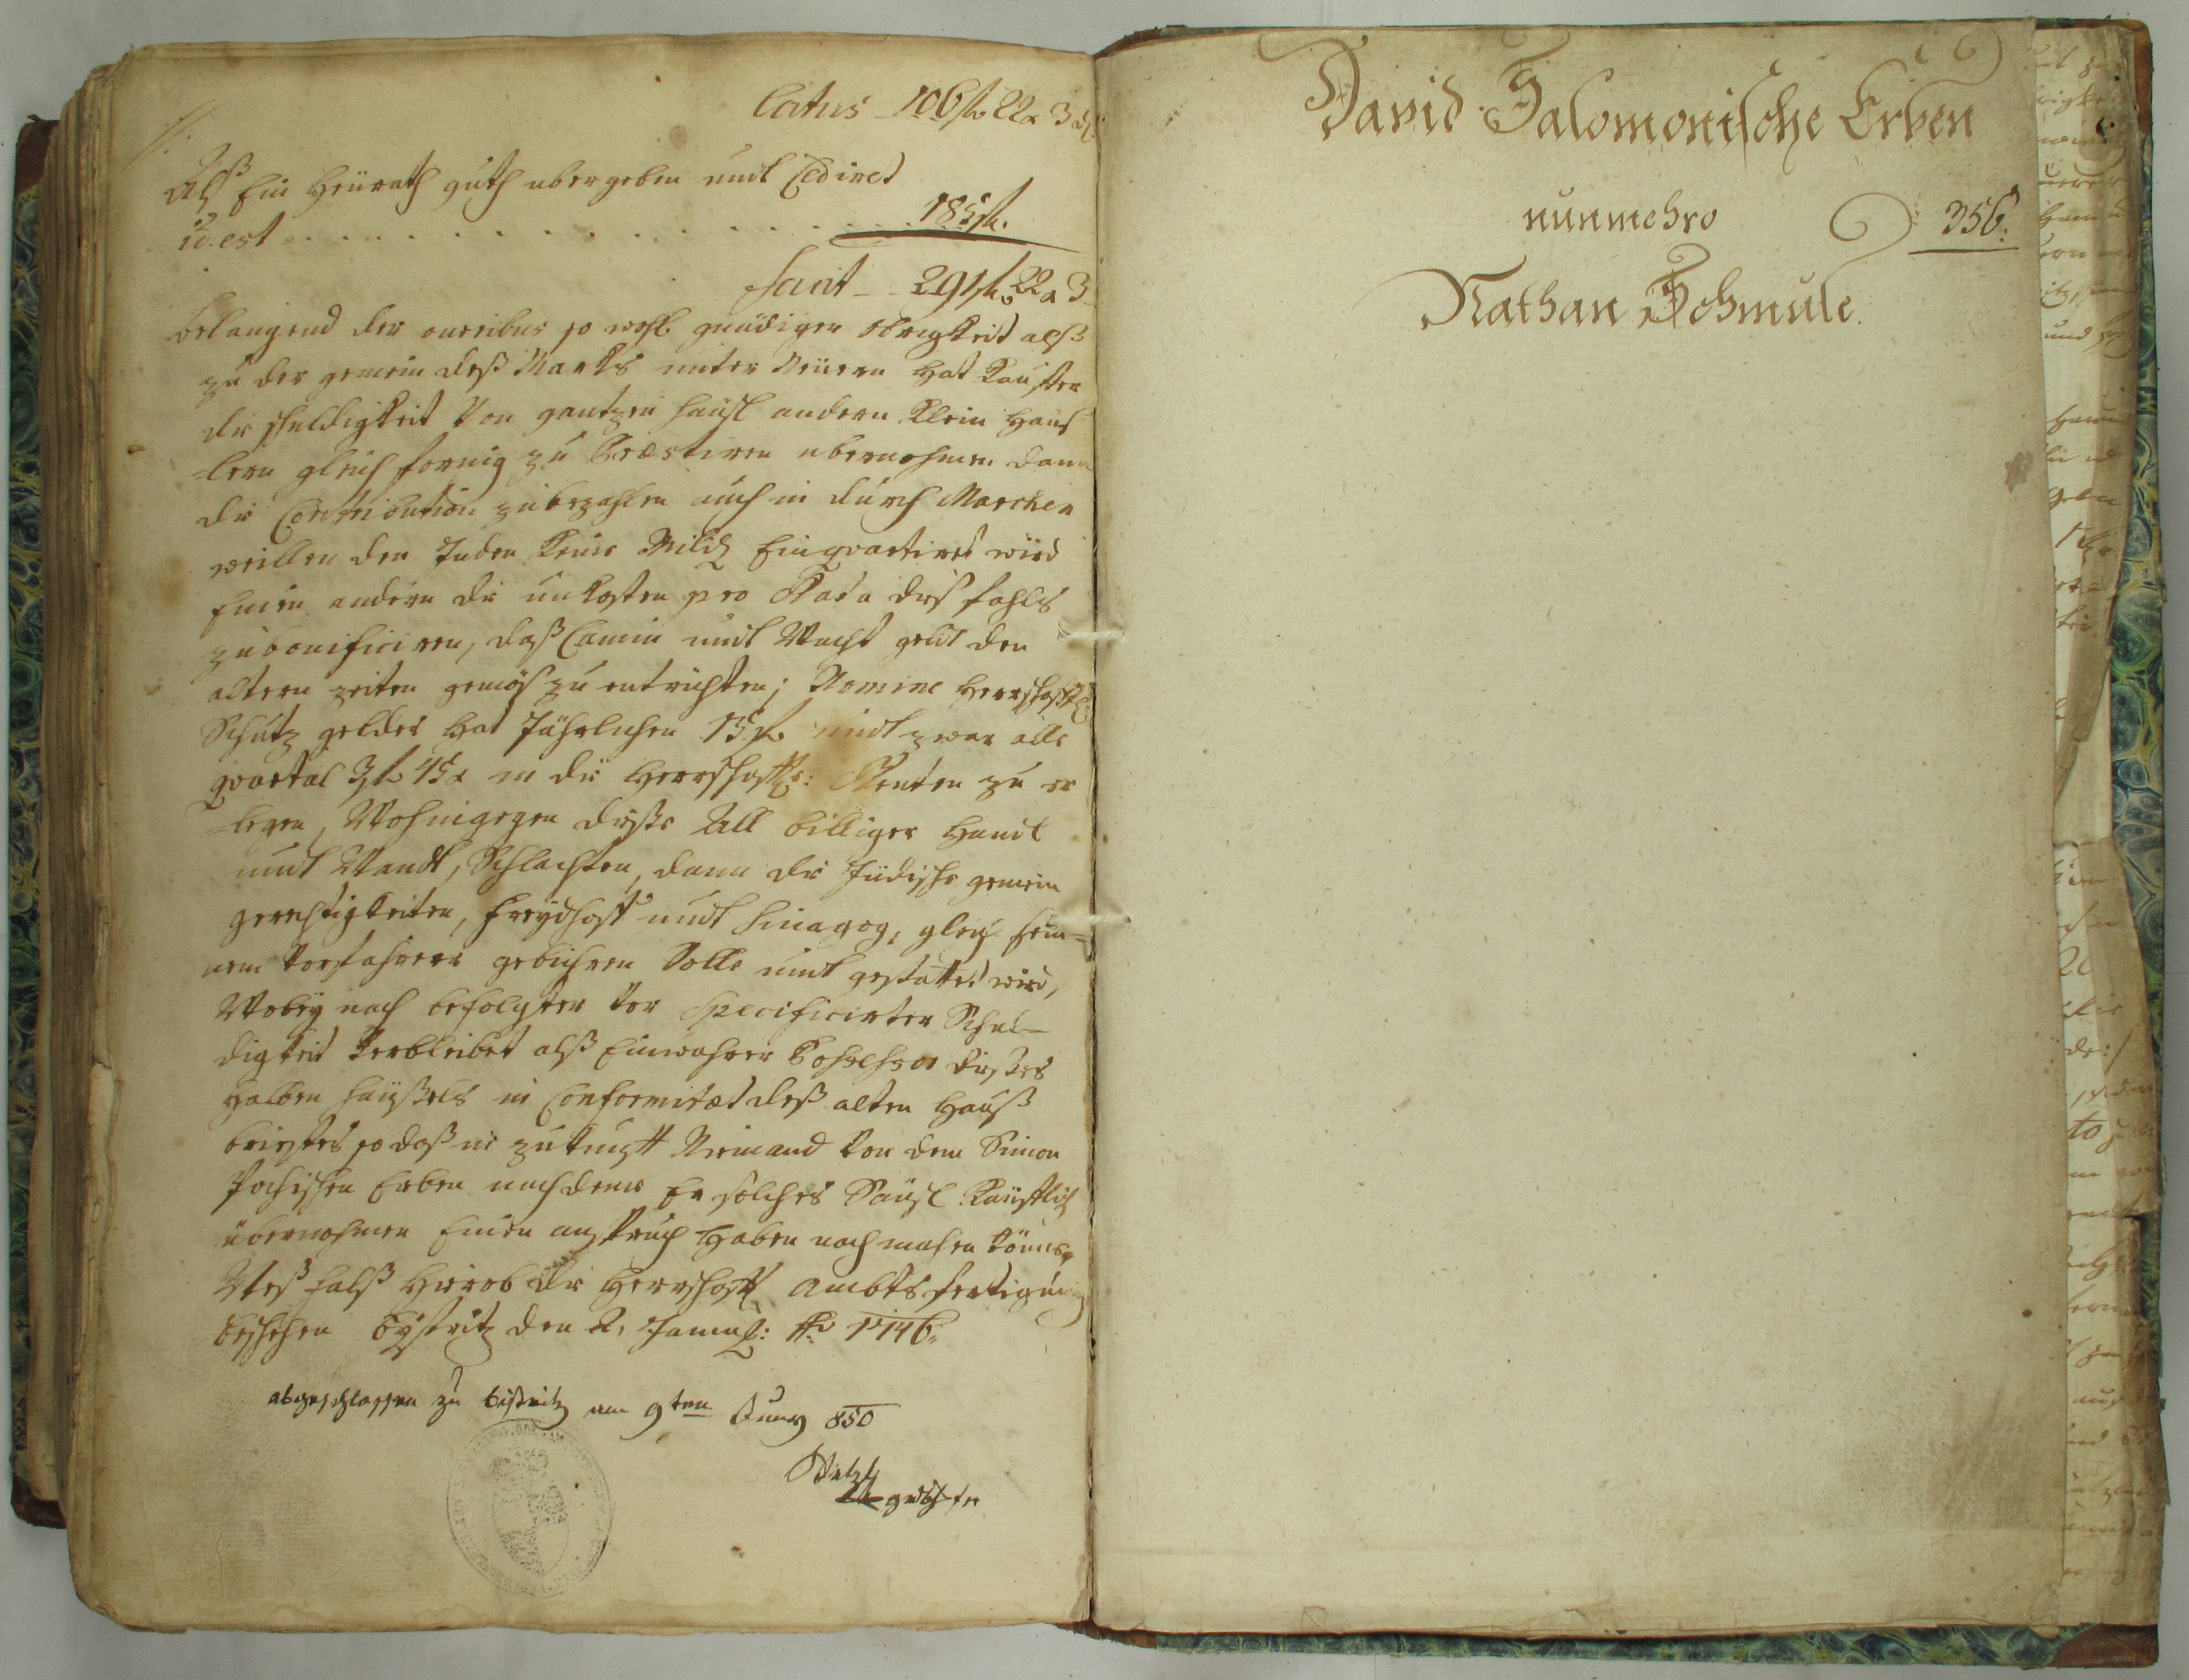 Latus 106 fl. 22 x 3 d.
Alß Ein Heürath guth ubergeben undt Cediret
id. est . . . . . . . . . . . . . . . . 185 fl.
facit 291 fl. 22 x 3
belangend der oneribus so wohl gnädiger Obrigkeit alß
zu der gemein deß Markts unter Neüern hat Kauffer
die schuldigkeit Von gantzen häusl andern Klein Häus-
=lern gleich formig zu Præstiren ubernohmen dann
die Contribution zubezahlen auch in durch Marchen
weillen den Juden Keine Militz Einquartiret wird
Einen andern die unkosten pro Rata dies fahls
zubonificiren, daß Camin undt Wacht geldt den
altern zeiten gemäs zu entrichten; Nomine Herrschafftl:
Schutz geldes hat Jährlichen 15 fl. undt zwar alle
quartal 3 fl. 45 x in die Herrschafftl: Renten zu er
=legen, Wohingegen dießer All billiger Handl
undt Wandl, Schlachten, dann die Jüdische gemein
gerechtigkeiten, Freydhoff undt Sinagog, gleich sein=
nem Vorfahrern gebühren Solle undt gestattet wird,
Wobey nach befolgter Vor specificirter Schul-
digkeit Verbleibet alß Einwohner dießes
halben häußels in Conformitæt deß alten Hauß
brieffes so daß in zukunfft Niemand Von dem Simon
Erben nachdeme Er solches Häusl Kaufflich
übernohmen Einen anspruch haben noch machen könne,
Weß halß hierob die Herrschafft Ambts fertigung
beschehen Bystritz den 2. Januar: Ao 1746.
abgeschlossen zu Bistritz am 9ten Juny 850
David Salomonische Erben
nunmehro 356.
Nathan Schmule.